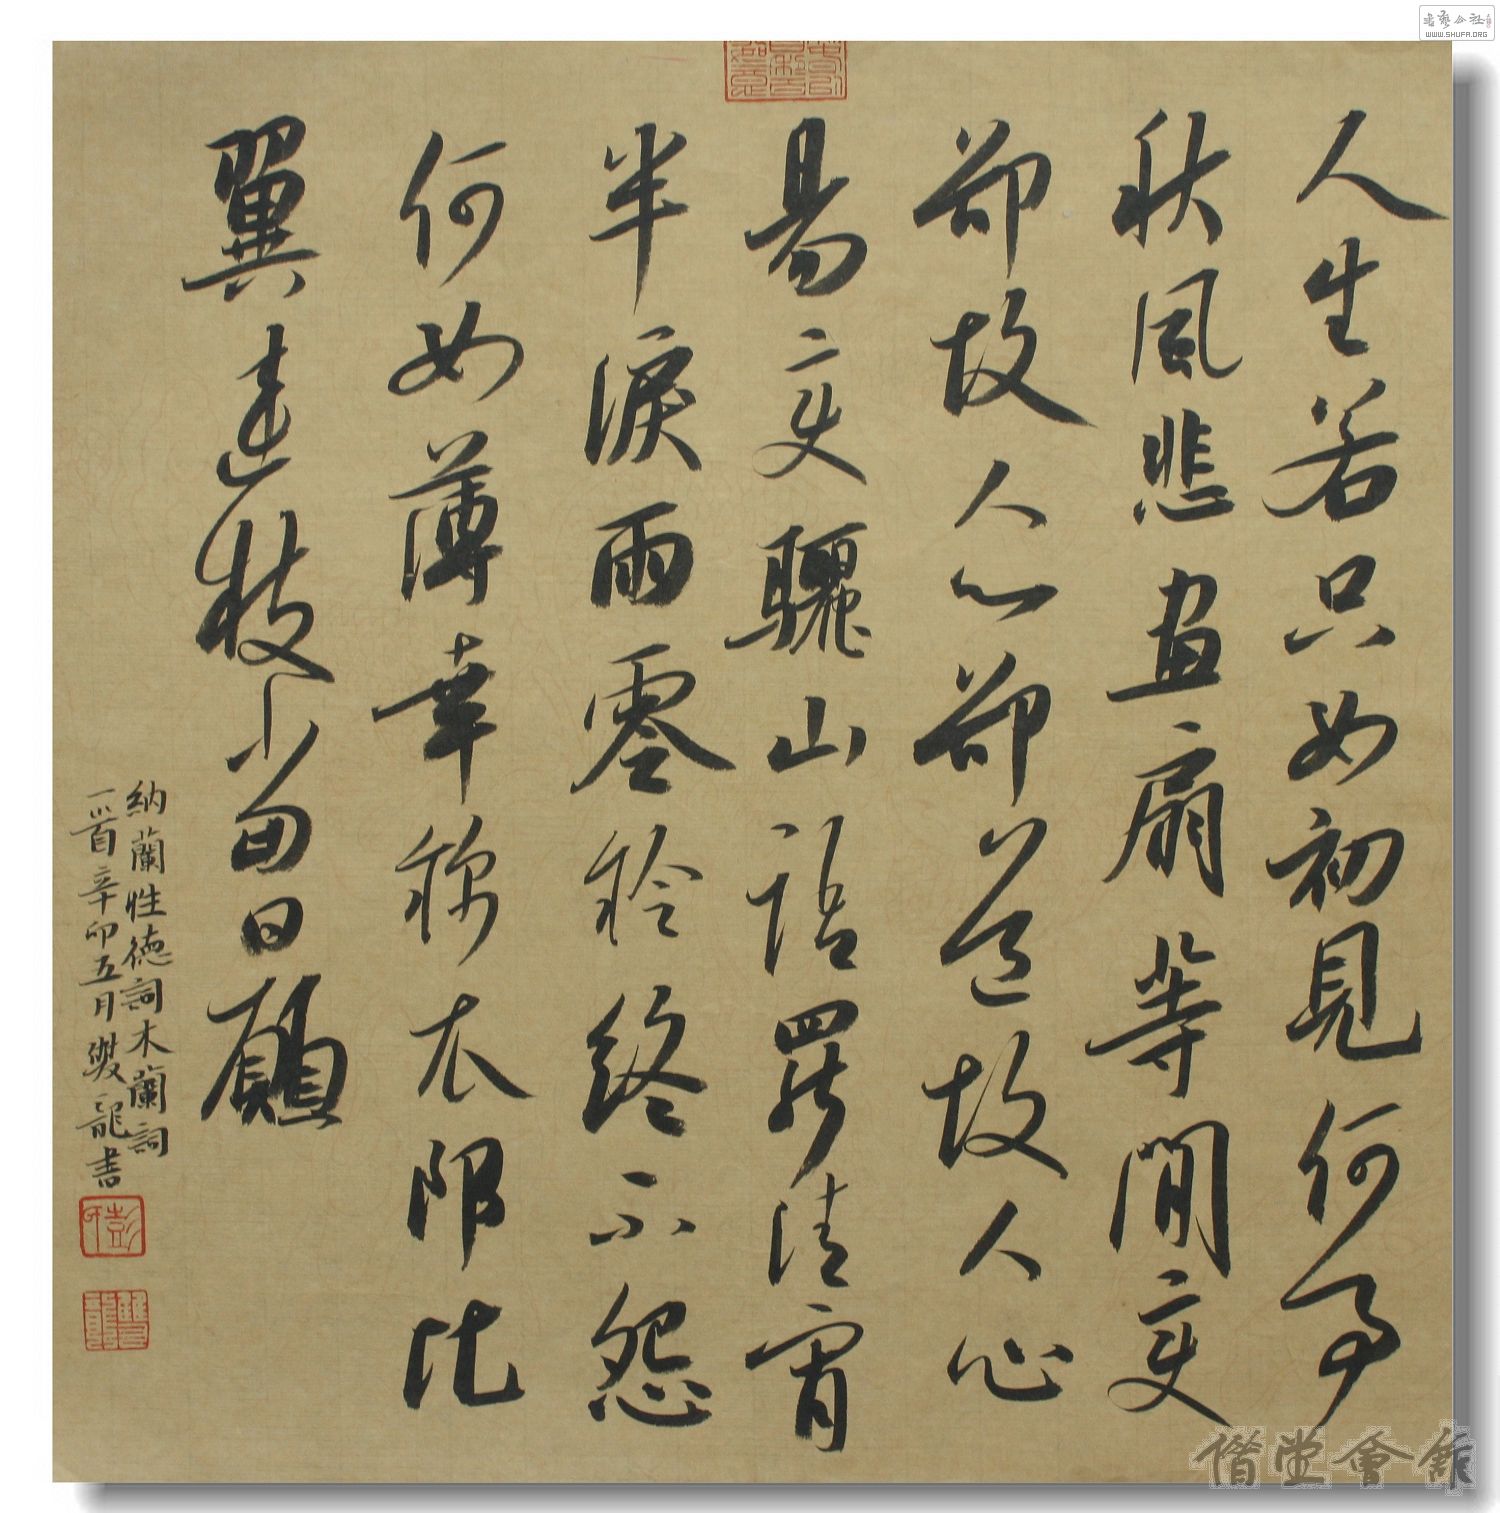 人生若只如初見何事
秋風悲畫扇等閒變
卻故人心卻道故人心
易變驪山語罷清宵
半淚雨零鈴終不怨
何如薄幸錦衣郎比
翼連枝當日願
納蘭性德詞木蘭詞
一首辛卯五月雙龍書
書藝公社
WWW.SHUFA.ORG